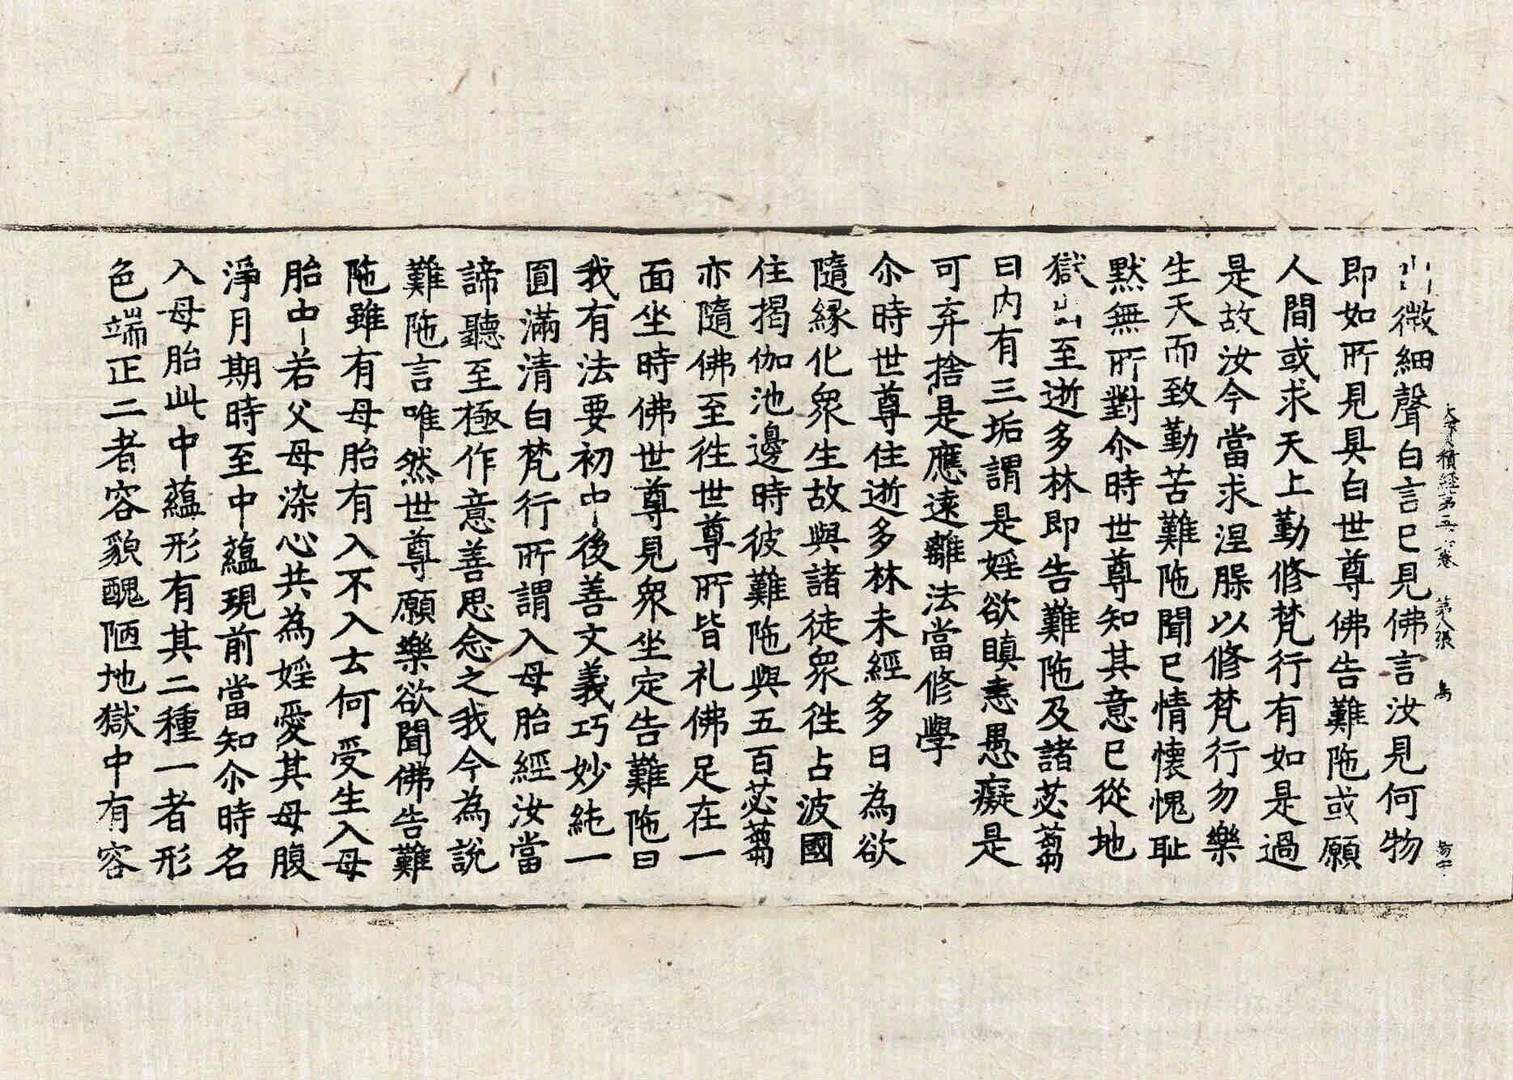 大寶積經第五六卷　第八張　鳥
出微細聲白言已見佛言汝見何物
即如所見具白世尊佛告難陁或願
人間或求天上勤修梵行有如是過
是故汝今當求涅槃以修梵行勿樂
生天而致勤苦難陁聞已情懷愧恥
黙無所對尒時世尊知其意已從地
獄出至逝多林即告難陁及諸苾蒭
曰内有三垢謂是婬欲瞋恚愚癡是
可弃捨是應遠離法當修學
尒時世尊住逝多林未經多日為欲
隨縁化衆生故與諸徒衆徃占波國
住揭伽池邊時彼難陁與五百苾蒭
亦隨佛至徃世尊所皆礼佛足在一
面坐時佛世尊見衆坐定告難陁曰
我有法要初中後善文義巧妙純一
圓滿清白梵行所謂入母胎經汝當
諦聽至極作意善思念之我今為說
難陁言唯然世尊願樂欲聞佛告難
陁雖有母胎有入不入云何受生入母
胎中若父母染心共為婬愛其母腹
淨月期時至中蘊現前當知尒時名
入母胎此中蘊形有其二種一者形
色端正二者容貌醜陋地獄中有容